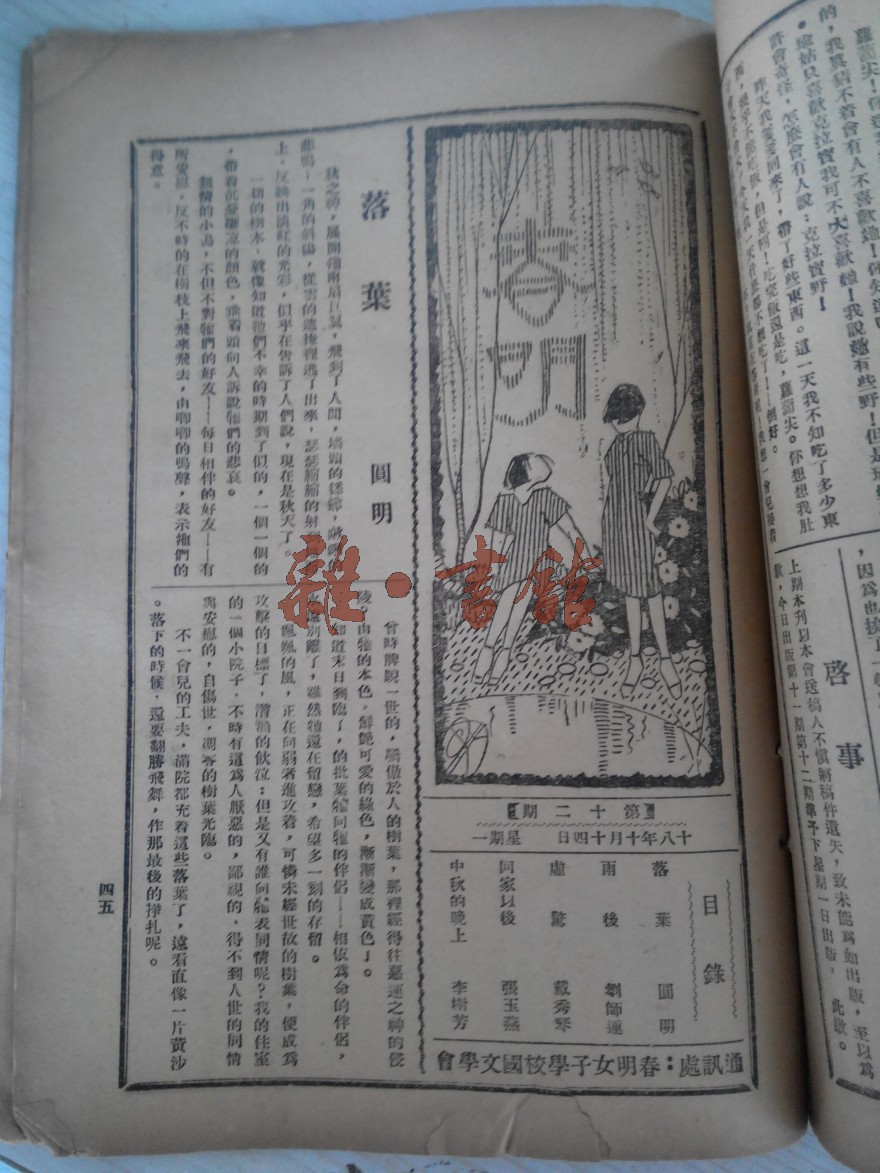 春明
【第十二期】
十八年十月十四日 星期一
目錄
落葉 圓明
雨後 劉師蓮
虛驚 戴秀琴
回家以後 張玉燕
中秋的晚上 李樹芳
通訊處:春明女子學校國文學會
落葉
圓明
秋之神,展開牠兩扇巨翼,飛到了人間,墻頭的
悲鳴!一角的斜陽,從雲的遮掩裡逃了出來,瑟瑟縮縮的射
上,反映出淡紅的光彩,似乎在告訴了人們說,現在是秋天了。
一切的樹木,就像知道牠們不幸的時期到了似的,一個一個的
,帶着沉憂凄凉的顏色,垂着頭向人訴說牠們的悲哀。
無情的小鳥,不但不對牠們的好友——每日相伴的好友——有
所安慰,反不時的在樹枝上飛來飛去,由啁啁的鳴聲,表示牠們的
得意。
曾時睥睨一世的,驕傲於人的樹葉,那裡經得住惡運之神的侵
凌。由牠的本色,鮮艷可愛的綠色,漸漸變成黃色了。
知道末日到臨了,的批葉牠同牠的伴侶——相依為命的伴侶,
別離了,雖然牠還在留戀,希望多一刻的存留。
颯颯的風,正在向弱者進攻着,可憐未經世故的樹葉,便成為
攻擊的目標了,潸潸的飲泣;但是又有誰向牠表同情呢?我的住室
的一個小院子,不時有這為人厭惡的,鄙視的,得不到人世的同情
與安慰的,自傷世,凋零的樹葉光臨。
不一會兒的工夫,滿院都充着這些落葉了,遠看直像一片黃沙
。落下的時候,還要翻騰飛舞,作那最後的掙扎呢。
四五
的,我真猜不着會有人不喜歡她!你知道嗎
。瑜姑只喜歡克拉寶我可不大喜歡她!我說她有些野!但是
許會奇怪,怎麼會有人說:克拉寶野!
昨天我爹爹回來了,帶了好些東西。這一天我不知吃了多少東
啓事
上期本刊以本會送稿人不慎將稿件遺失,致未能為如出版,至以為
歉,今日出版第十一期第十二期準予下星期一日出版, 此啟。
雜·書館